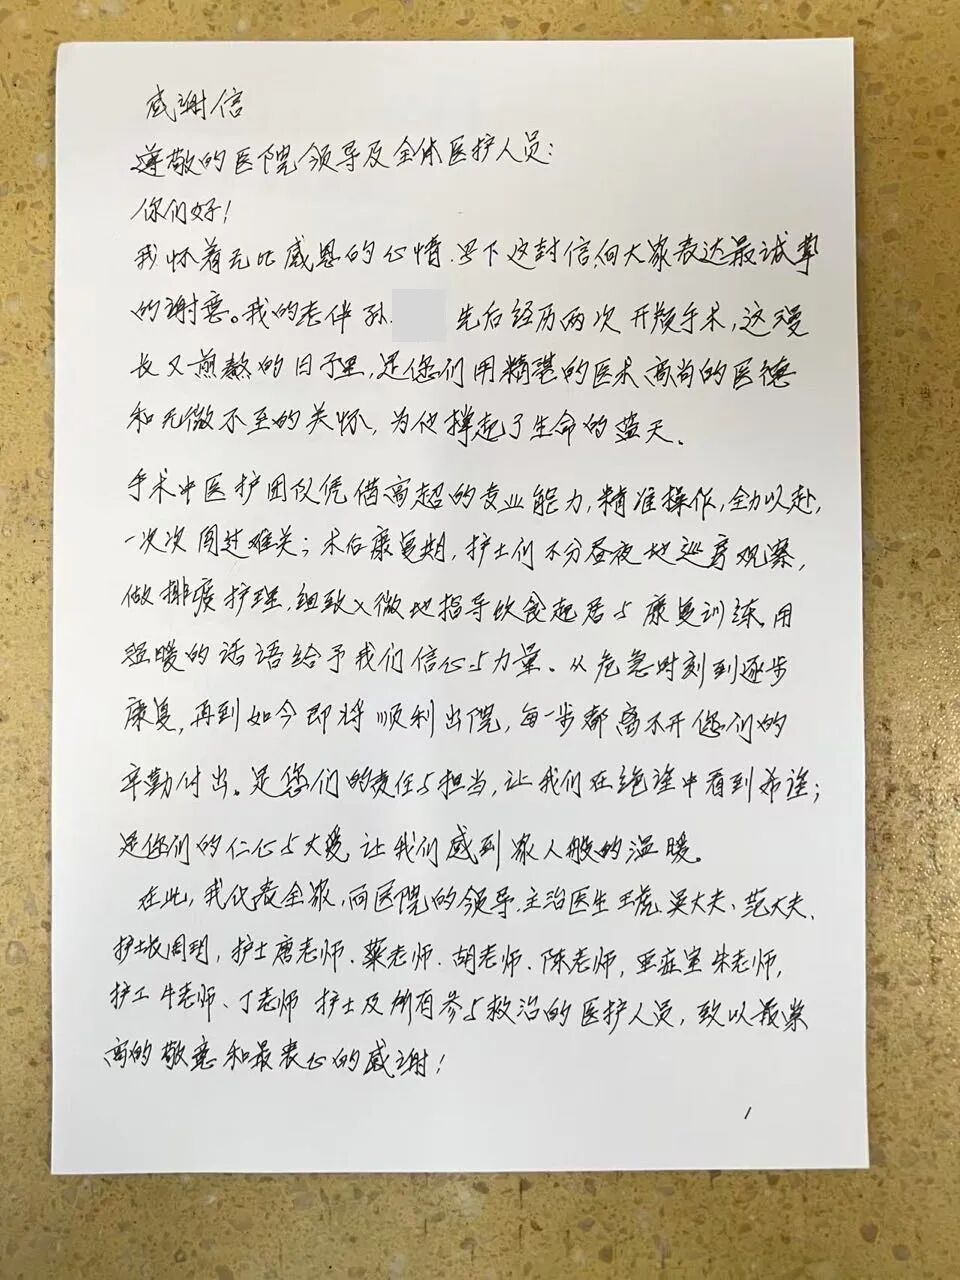 感谢信
尊敬的医院领导及全体医护人员：
你们好！
我怀着无比感恩的心情，写下这封信，向大家表达最诚挚
的谢意。我的老伴孙 先后经历两次开颅手术，这漫
长又煎熬的日子里，是您们用精湛的医术高尚的医德
和无微不至的关怀，为他撑起了生命的蓝天。
手术中医护团队凭借高超的专业能力，精准操作，全力以赴，
一次次闯过难关；术后康复期，护士们不分昼夜地巡房观察，
做排痰护理，细致入微地指导饮食起居与康复训练，用
温暖的话语给予我们信心与力量。从危急时刻到逐步
康复，再到如今即将顺利出院，每一步都离不开您们的
辛勤付出。是您们的责任与担当，让我们在绝途中看到希望；
是你们的仁心与大爱，让我们感到家人般的温暖。
在此，我代表全家，向医院的领导，主治医生王 吴大夫、范大夫、
护士长周玥，护士唐老师、蔡老师、胡老师、陈老师，重症室朱老师，
护工牛老师、丁老师 护士及所有参与救治的医护人员，致以最崇
高的敬意和最衷心的感谢！
1